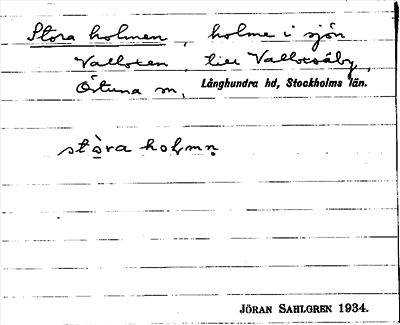 Stora holmen, holme i sjön
Valloxen, till Valloxsäby,
Östuna sn, Långhundra hd, Stockholms län.
stòra hol̥mn̥
JÖRAN SAHLGREN 1934.